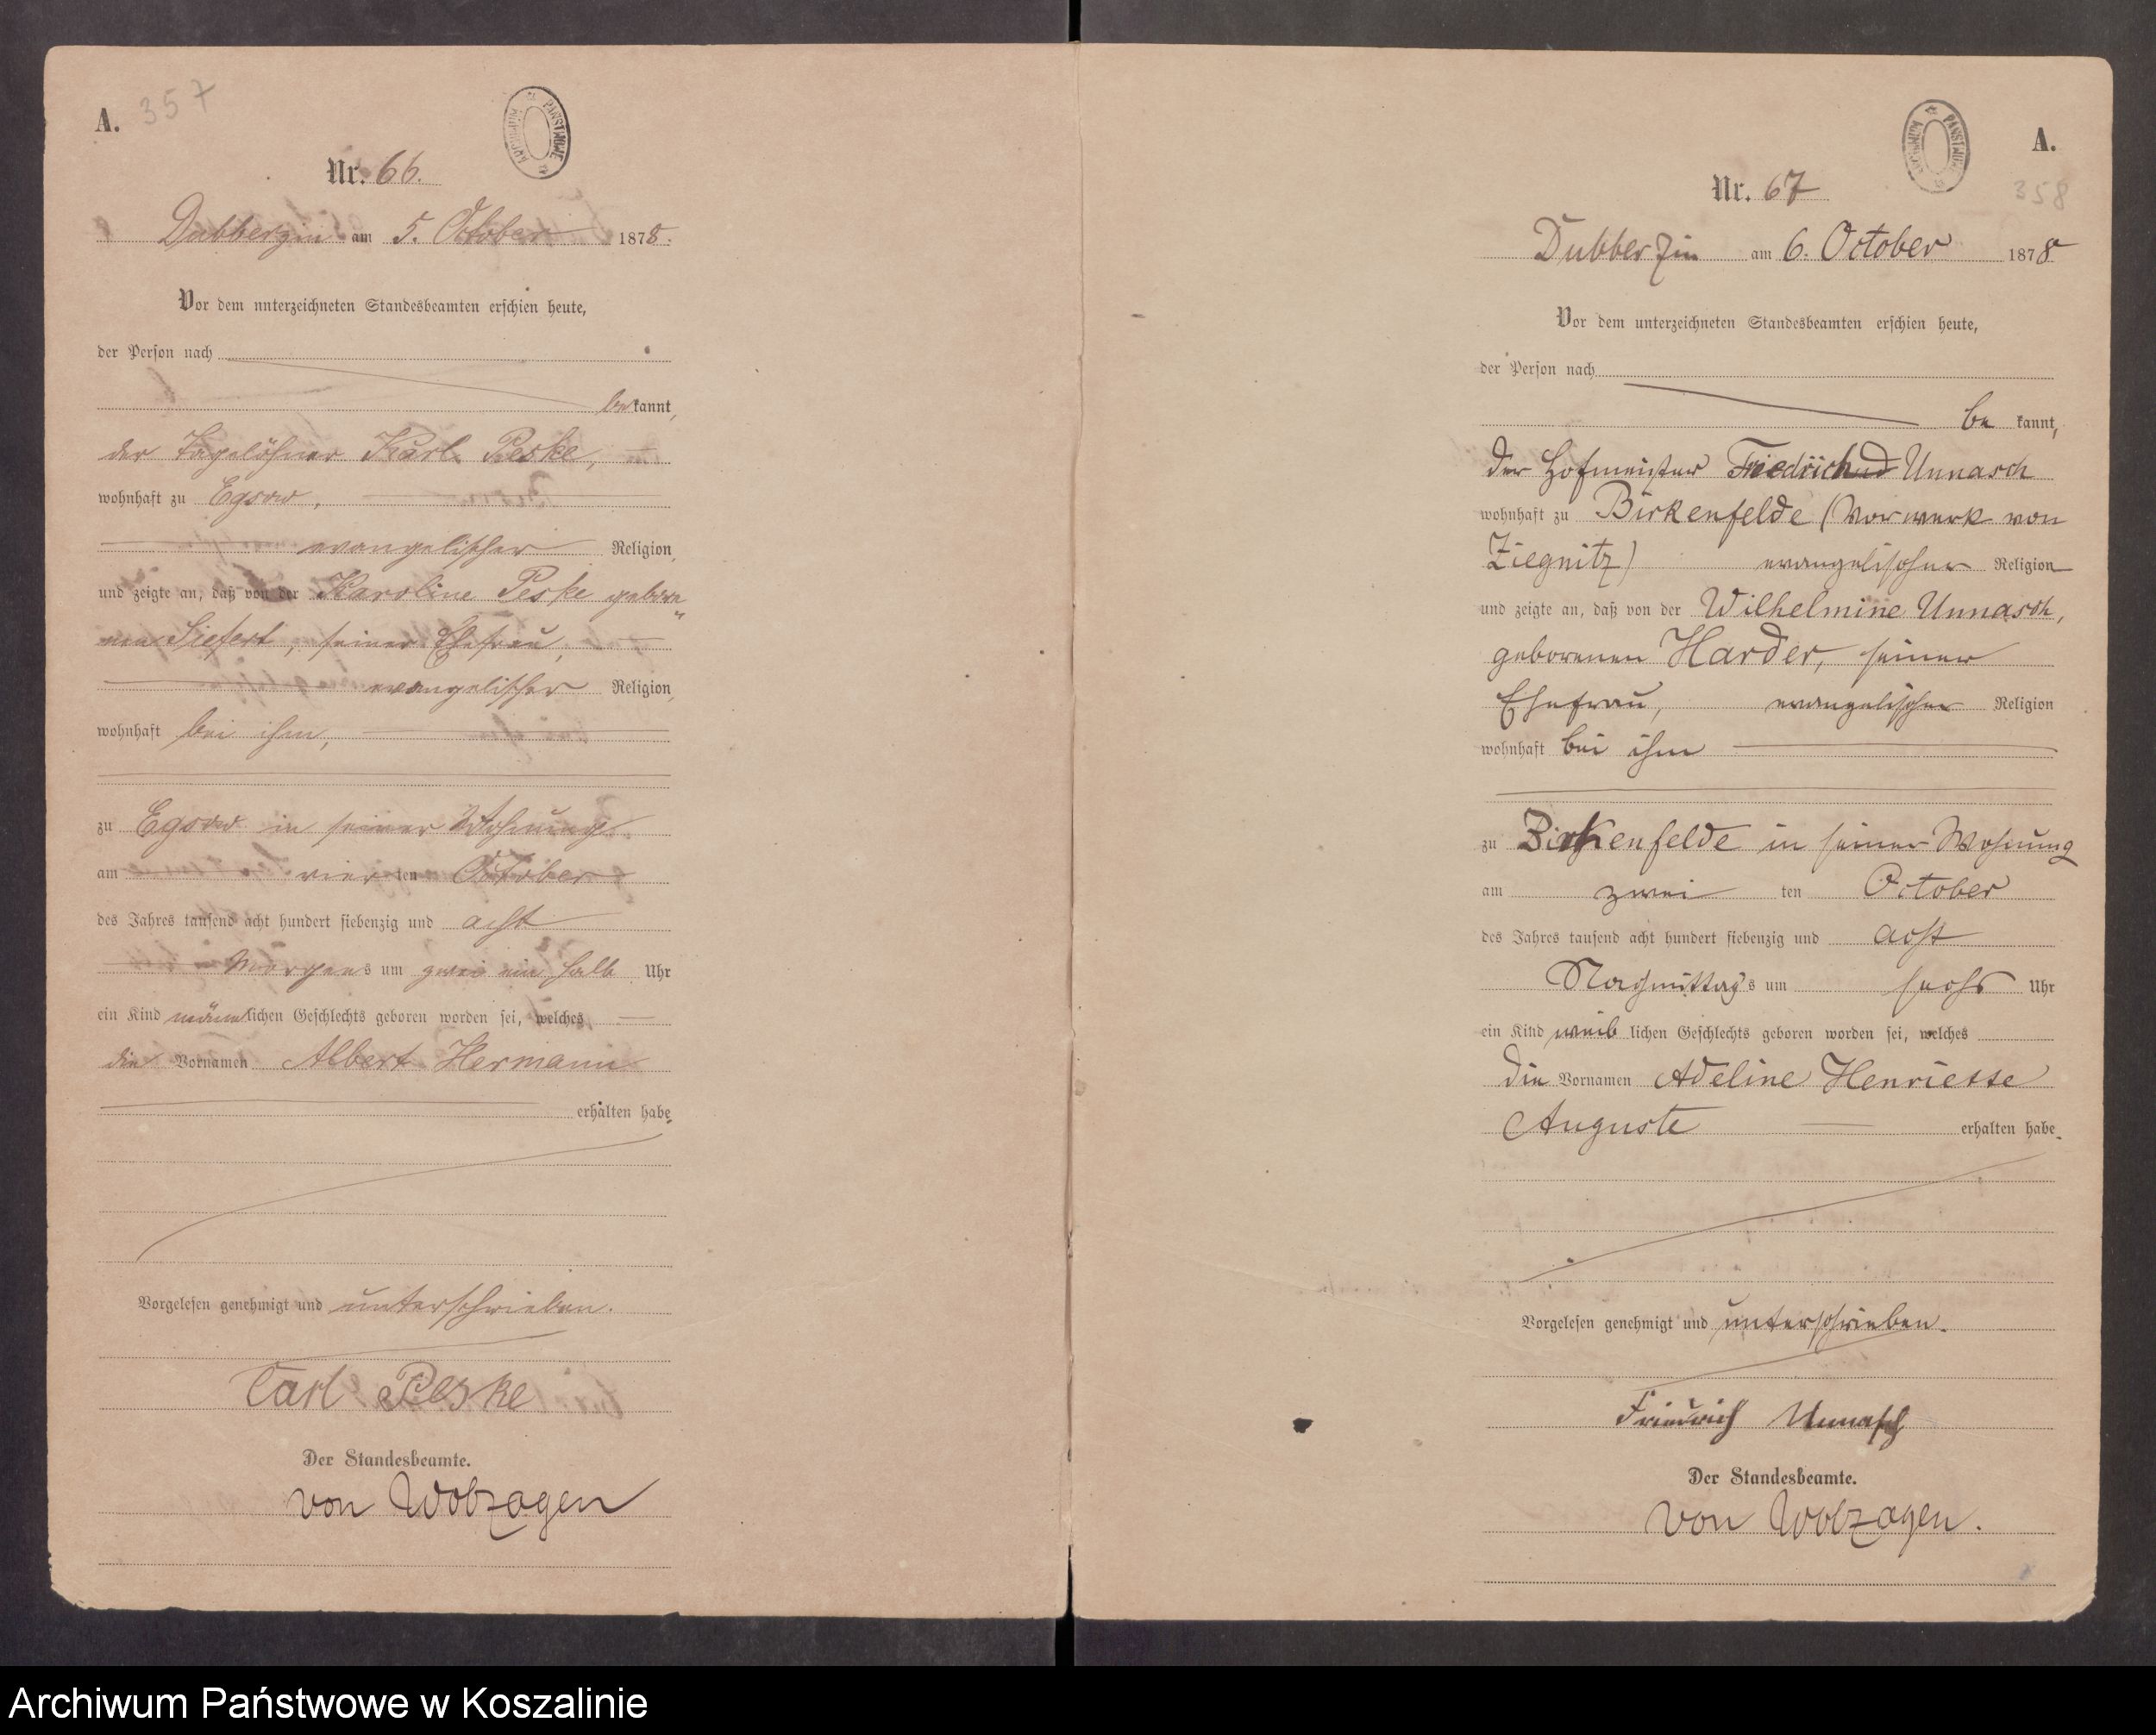 A. 357
ARCHIWUM PAŃSTWOWE
Nr. 66.
Dubberzin am 5. October 1878.
Vor dem unterzeichneten Standesbeamten erschien heute,
der Person nach
bekannt,
der Tagelöhner Karl Peske,
wohnhaft zu Egsow,
evangelischer Religion,
und zeigte an, daß von der Karoline Peske gebore
nen Siefert, seiner Ehefrau,
evangelischer Religion,
wohnhaft bei ihm,
zu Egsow in seiner Wohnung
am vier ten October
des Jahres tausend acht hundert siebenzig und acht
Morgens um zwei ein halb Uhr
ein Kind männlichen Geschlechts geboren worden sei, welches
die Vornamen Albert Hermann
erhalten habe.
Vorgelesen genehmigt und unterschrieben.
Carl Peske
Der Standesbeamte.
von Wobzagen
ARCHIWUM PAŃSTWOWE
A.
358
Nr. 67
Dubberzin am 6. October 1878
Vor dem unterzeichneten Standesbeamten erschien heute,
der Person nach
be kannt,
der Hofmeister Friedrich Unnasch
wohnhaft zu Birkenfelde (Vorwerk von
Ziegnitz) evangelischer Religion
und zeigte an, daß von der Wilhelmine Unnasch,
geborenen Harder, seiner
Ehefrau, evangelischer Religion
wohnhaft bei ihm
zu Birkenfelde in seiner Wohnung
am zwei ten October
des Jahres tausend acht hundert siebenzig und acht
Nachmittags um sechs Uhr
ein Kind weib lichen Geschlechts geboren worden sei, welches
die Vornamen Adeline Henriette
Auguste erhalten habe.
Vorgelesen genehmigt und unterschrieben.
Friedrich Unnasch
Der Standesbeamte.
von Wobzagen.
Archiwum Państwowe w Koszalinie